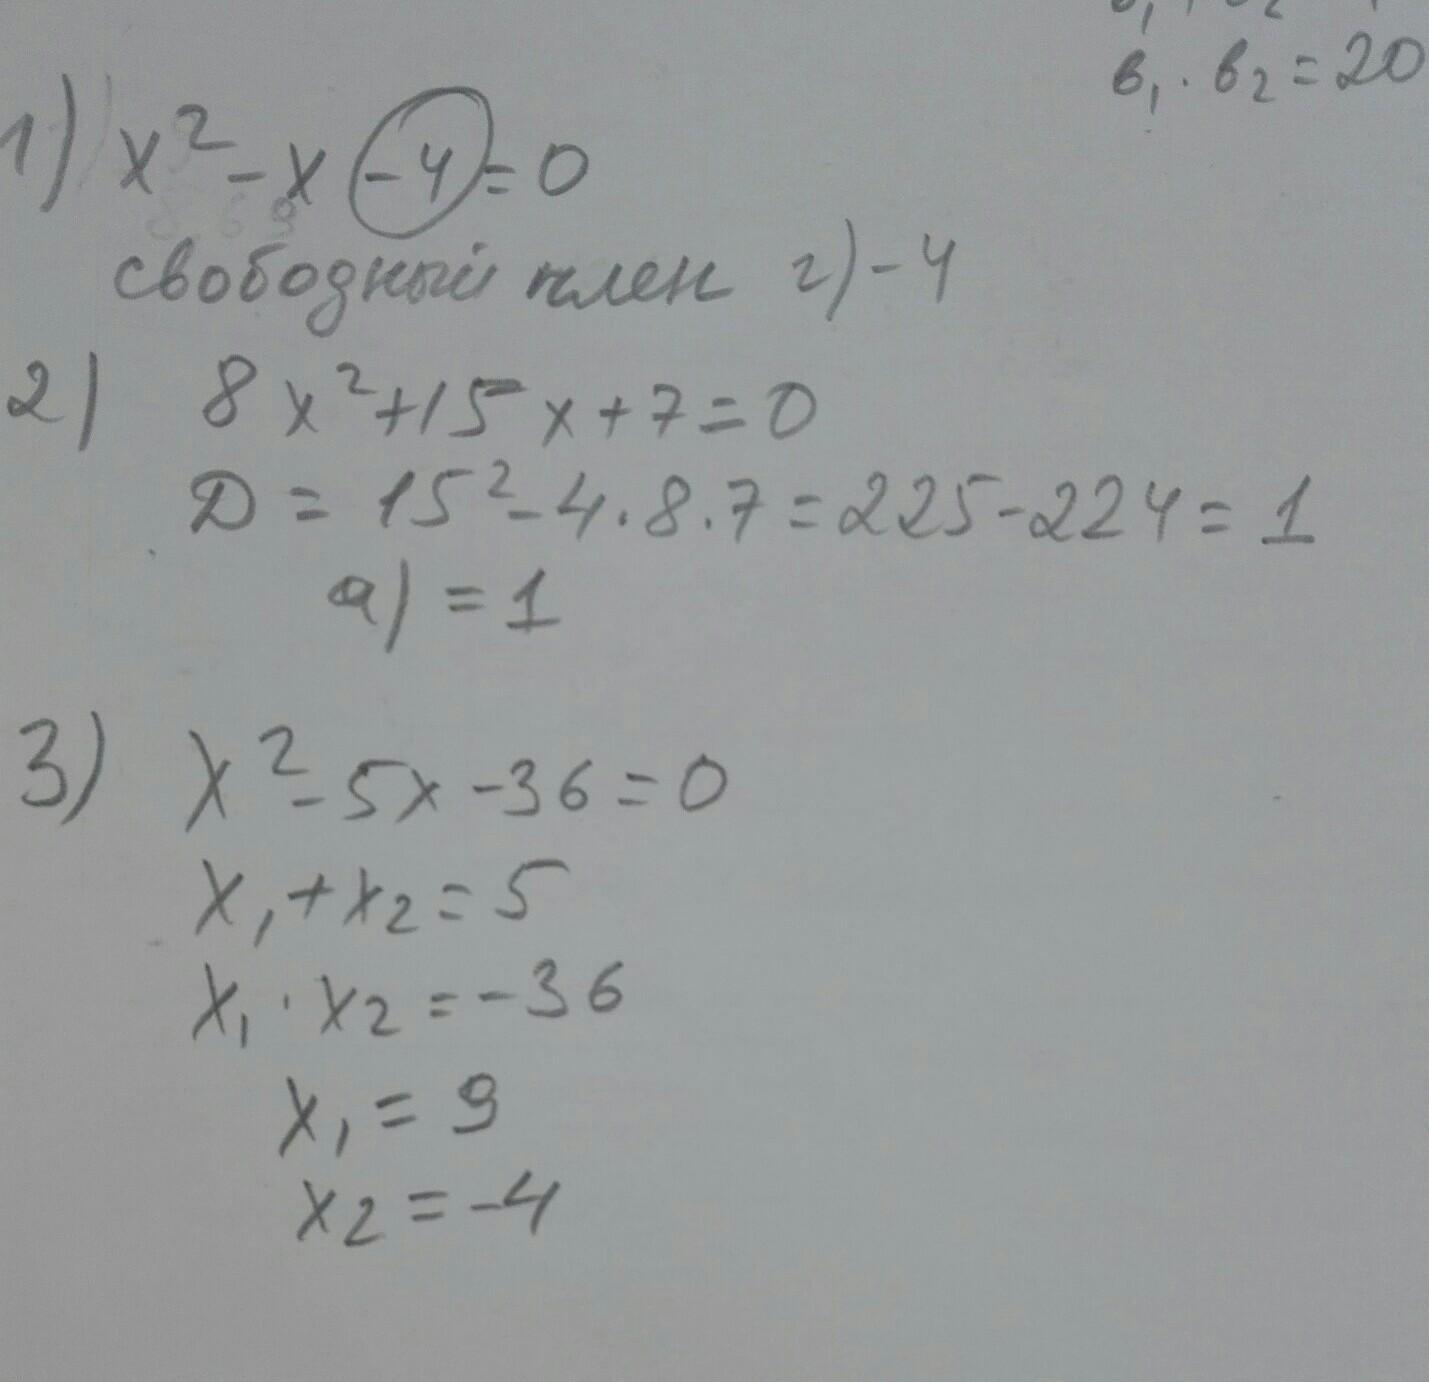 в₁ · в₂ = 20
1) x² - x - 4 = 0
свободный член г) - 4
2) 8x² + 15x + 7 = 0
D = 15² - 4 · 8 · 7 = 225 - 224 = 1
а) = 1
3) x² - 5x - 36 = 0
x₁ + x₂ = 5
x₁ · x₂ = -36
x₁ = 9
x₂ = -4